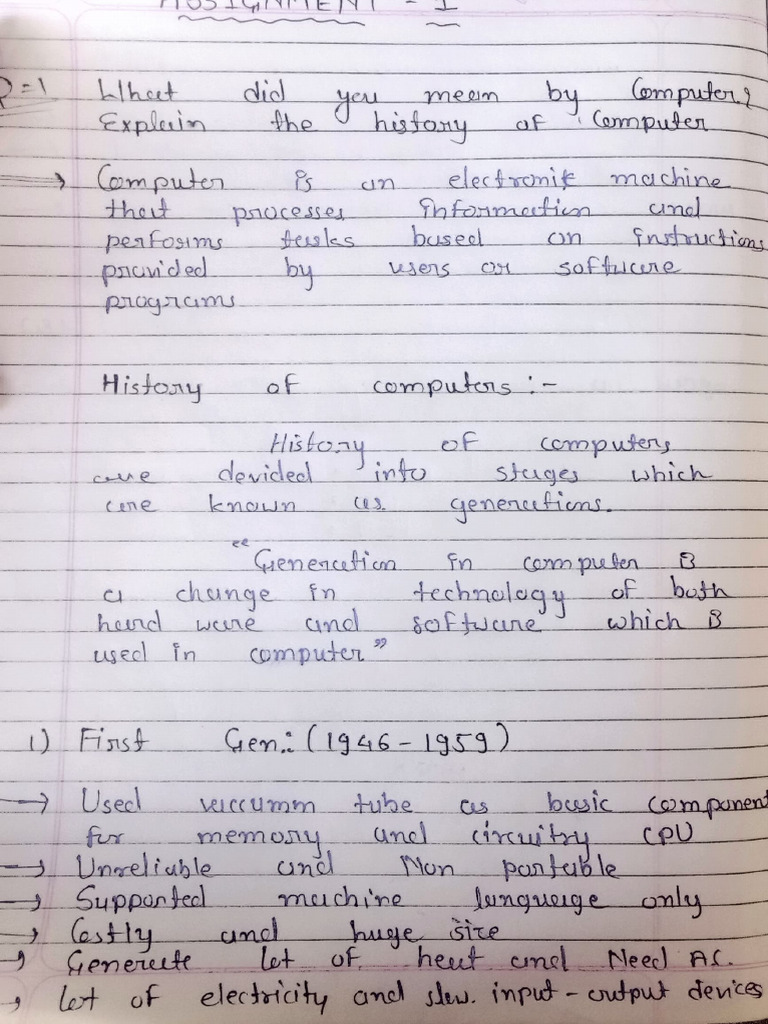 ASSIGNMENT - 1
Q=1 What did you mean by Computer?
Explain the history of Computer
→ Computer is an electronic machine
that processes information and
performs tasks based on instructions
provided by users or software
programs
History of computers :-
History of computers
are devided into stages which
are known as generations.
"Generation in computer is
a change in technology of both
hard ware and software which is
used in computer"
1) First Gen: (1946-1959)
→ Used vaccumm tube as basic component
for memory and circuitry CPU
→ Unreliable and Non portable
→ Supported machine language only
→ Costly and huge size
→ Generate lot of heat and Need AC.
→ lot of electricity and slow input-output devices